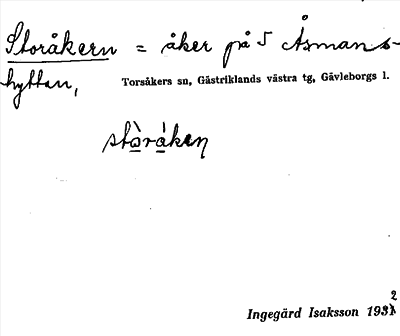 Storåkern = åker på 5 Åsmans-
hyttan,
Torsåkers sn, Gästriklands västra tg, Gävleborgs l.
stòråken
Ingegärd Isaksson 1932